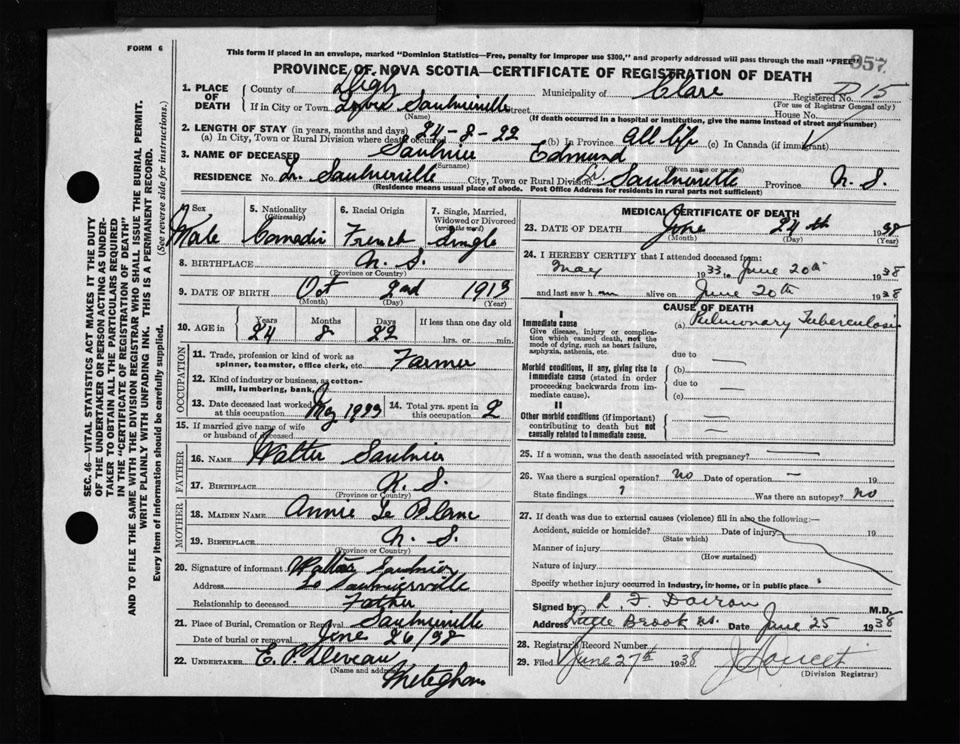 FORM 6
This form if placed in an envelope, marked "Dominion Statistics—Free, penalty for improper use $300," and properly addressed will pass through the mail "FREE"
957
PROVINCE OF NOVA SCOTIA—CERTIFICATE OF REGISTRATION OF DEATH
SEC. 46—VITAL STATISTICS ACT MAKES IT THE DUTY
OF THE UNDERTAKER OR PERSON ACTING AS UNDER-
TAKER TO OBTAIN ALL THE PARTICULARS REQUIRED
IN THE "CERTIFICATE OF REGISTRATION OF DEATH"
AND TO FILE THE SAME WITH THE DIVISION REGISTRAR WHO SHALL ISSUE THE BURIAL PERMIT.
WRITE PLAINLY WITH UNFADING INK. THIS IS A PERMANENT RECORD.
Every item of Information should be carefully supplied. (See reverse side for instructions.)
1. PLACE OF DEATH
County of Digby Municipality of Clare Registered No. D 15
(For use of Registrar General only)
If in City or Town Lower Saulnierville Street House No.
(Name) (If death occurred in a hospital or institution, give the name instead of street and number)
2. LENGTH OF STAY (in years, months and days)
(a) In City, Town or Rural Division where death occurred 24-8-22 (b) In Province all life (c) In Canada (if immigrant)
3. NAME OF DECEASED Saulnier Edmund
(Surname) (Given name or names)
RESIDENCE No. Lr. Saulnierville City, Town or Rural Division Lr. Saulnierville Province N. S.
(Residence means usual place of abode. Post Office Address for residents in rural parts not sufficient)
4. Sex 5. Nationality (Citizenship) 6. Racial Origin 7. Single, Married, Widowed or Divorced (write the word)
Male Canadin French Single
8. BIRTHPLACE N. S.
(Province or Country)
9. DATE OF BIRTH Oct 2nd 1913
(Month) (Day) (Year)
10. AGE in Years Months Days If less than one day old
24 8 22 hrs. or min.
OCCUPATION
11. Trade, profession or kind of work as
spinner, teamster, office clerk, etc. Farmer
12. Kind of industry or business, as cotton-
mill, lumbering, bank,
13. Date deceased last worked
at this occupation May 1933 14. Total yrs. spent in
this occupation 2
15. If married give name of wife
or husband of deceased
FATHER
16. NAME Walter Saulnier
17. BIRTHPLACE N. S.
(Province or Country)
MOTHER
18. MAIDEN NAME Annie Le Blanc
19. BIRTHPLACE N. S.
(Province or Country)
20. Signature of informant Walter Saulnier
Address Lo Saulnierville
Relationship to deceased Father
21. Place of Burial, Cremation or Removal Saulnierville
Date of burial or removal June 26/38
22. UNDERTAKER E. P. Deveau
(Name and address) Meteghan
MEDICAL CERTIFICATE OF DEATH
23. DATE OF DEATH June 24th 1938
(Month) (Day) (Year)
24. I HEREBY CERTIFY that I attended deceased from:
May 1933 June 20th 1938
and last saw h im alive on June 20th 1938
CAUSE OF DEATH
I
Immediate cause (a) Pulmonary Tuberculosis
Give disease, injury or complica-
tion which caused death, not the
mode of dying, such as heart failure,
asphyxia, asthenia, etc.
due to
Morbid conditions, if any, giving rise to
immediate cause (stated in order
proceeding backwards from im-
mediate cause).
(b)
due to
(c)
II
Other morbid conditions (if important)
contributing to death but not
causally related to immediate cause.
25. If a woman, was the death associated with pregnancy?
26. Was there a surgical operation? no Date of operation
State findings ? Was there an autopsy? no
27. If death was due to external causes (violence) fill in also the following:—
Accident, suicide or homicide? Date of injury 19
(State which)
Manner of injury
(How sustained)
Nature of injury
Specify whether injury occurred in industry, in home, or in public place
Signed by L. F. Doiron M.D.
Address Little Brook NS. Date June 25 1938
28. Registrar's Record Number
29. Filed June 27th 1938
(Division Registrar)